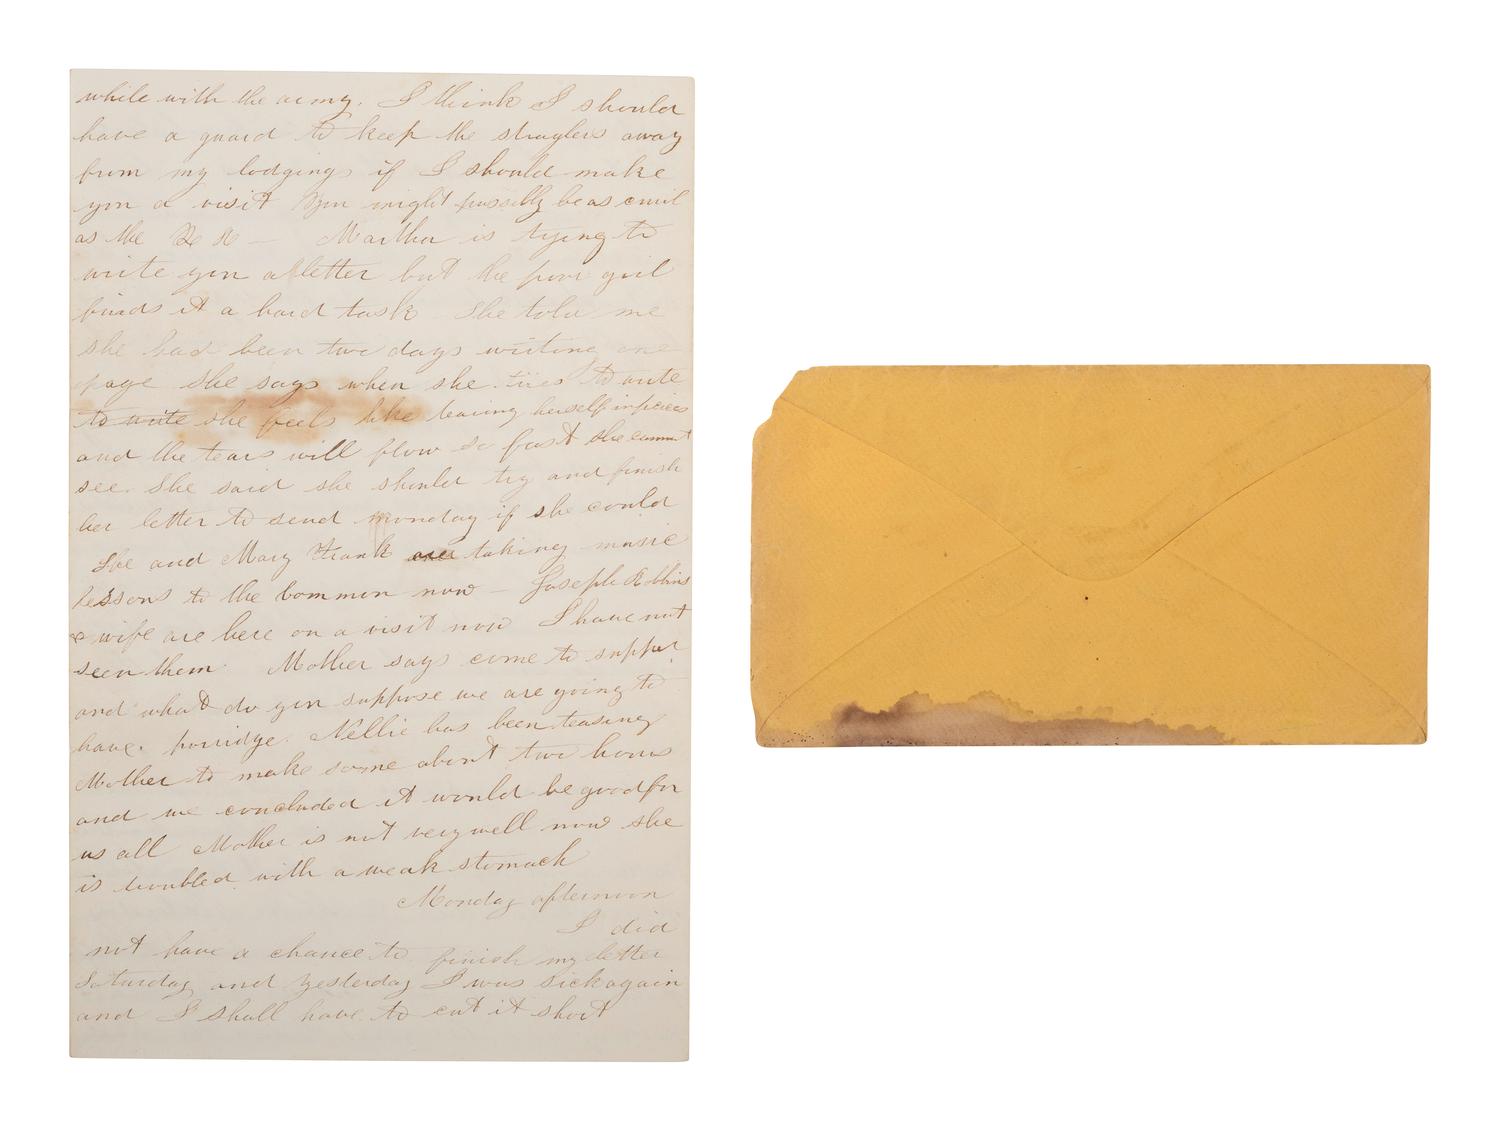 while with the army. I think I should
have a guard to keep the straglers away
from my lodgings if I should make
you a visit You might possibly be as civil
as the R R — Martha is trying to
write you a letter but the poor girl
finds it a hard task She told me
she had been two days writing one
page She says when she tries to write
to write she feels like tearing herself in peices
and the tears will flow so fast she cannot
see. She said she should try and finish
her letter to send monday if she could
She and Mary Frank are taking music
lessons to the common now — Joseph Robbins
& wife are here on a visit now I have not
seen them Mother says come to supper
and what do you suppose we are going to
have. porridge. Nellie has been teasing
Mother to make some about two hours
and we concluded it would be good for
us all Mother is not very well now she
is troubled with a weak stomach
Monday afternoon
I did
not have a chance to finish my letter
Saturday and Yesterday I was sick again
and I shall have to cut it short